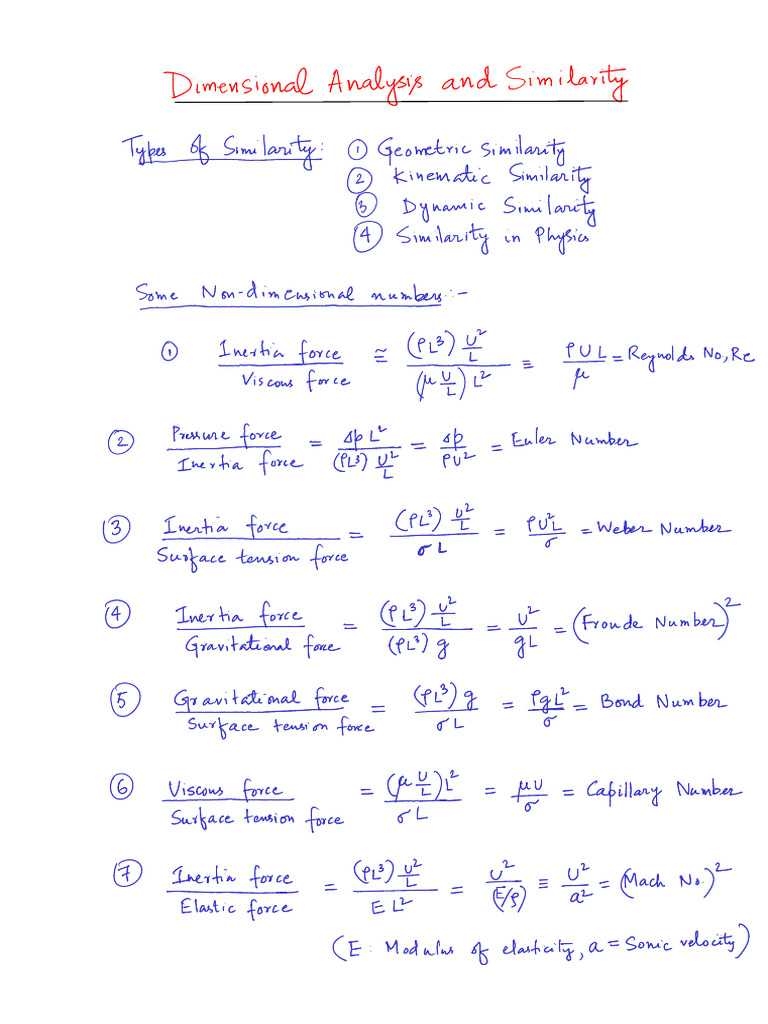 Dimensional Analysis and Similarity
Types of Similarity: ① Geometric Similarity
② Kinematic Similarity
③ Dynamic Similarity
④ Similarity in Physics
Some Non-dimensional numbers:-
① Inertia force / Viscous force ≅ (ρL³) U²/L / (μ U/L) L² ≡ ρUL / μ = Reynolds No, Re
② Pressure force / Inertia force = Δp L² / (ρL³) U²/L = Δp / ρU² = Euler Number
③ Inertia force / Surface tension force = (ρL³) U²/L / σL = ρU²L / σ = Weber Number
④ Inertia force / Gravitational force = (ρL³) U²/L / (ρL³) g = U² / gL = (Froude Number)²
⑤ Gravitational force / Surface tension force = (ρL³) g / σL = ρgL² / σ = Bond Number
⑥ Viscous force / Surface tension force = (μ U/L) L² / σL = μU / σ = Capillary Number
⑦ Inertia force / Elastic force = (ρL³) U²/L / E L² = U² / (E/ρ) ≡ U² / a² = (Mach No.)²
(E: Modulus of elasticity, a = Sonic velocity)